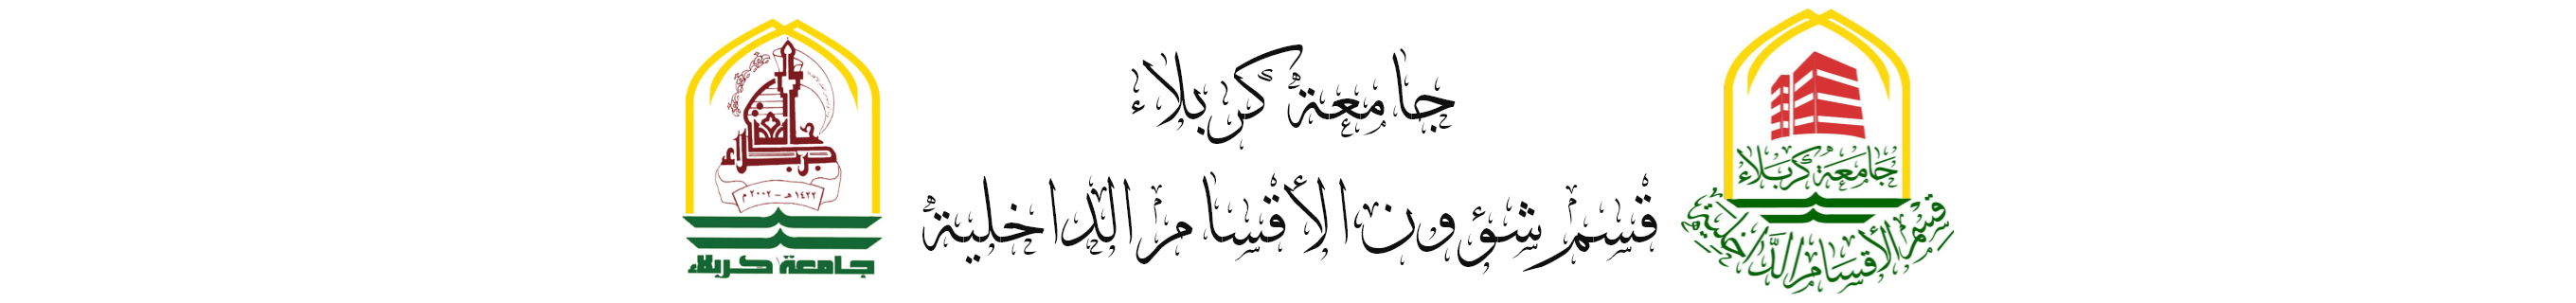 جامعة كربلاء
قسم شؤون الأقسام الداخلية
جَامعَة كَربَلاء
قِسْم الأقسَام الدَّاخلية
جامعة
كربلاء
١٤٢٢ هـ - ٢٠٠٢ م
جامعة كربلاء